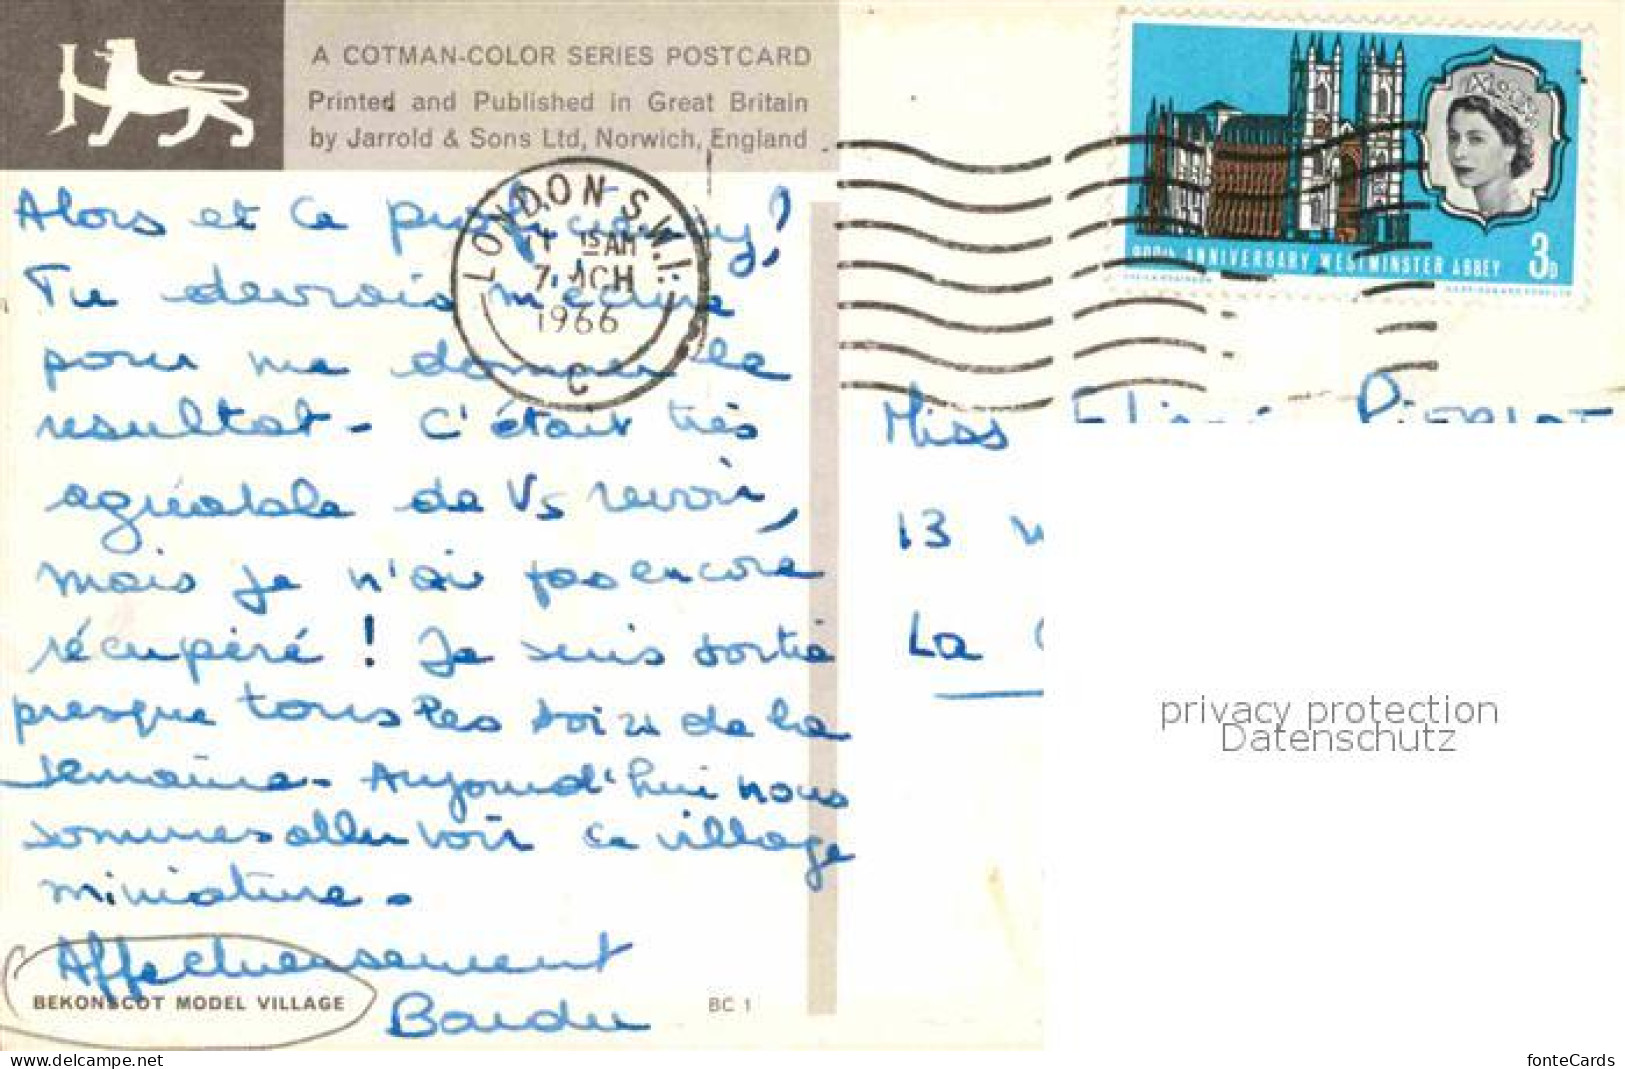 A COTMAN-COLOR SERIES POSTCARD
Printed and Published in Great Britain
by Jarrold & Sons Ltd, Norwich, England
LONDON S.W.1.
15 AM
1966
C
900th ANNIVERSARY WESTMINSTER ABBEY 3D
Alors et ce
Tu devrais m'écrire
pour me donner le
resultat - C'était très
agréable de Vs revoir,
mais je n'ai pas encore
récupéré ! Je suis sortie
presque tous les soirs de la
semaine. Aujourd'hui nous
sommes aller voir ce village
miniature.
Affectueusement
BEKONSCOT MODEL VILLAGE
BC 1
Miss
13
La
privacy protection
Datenschutz
akpool.com
fonteCards